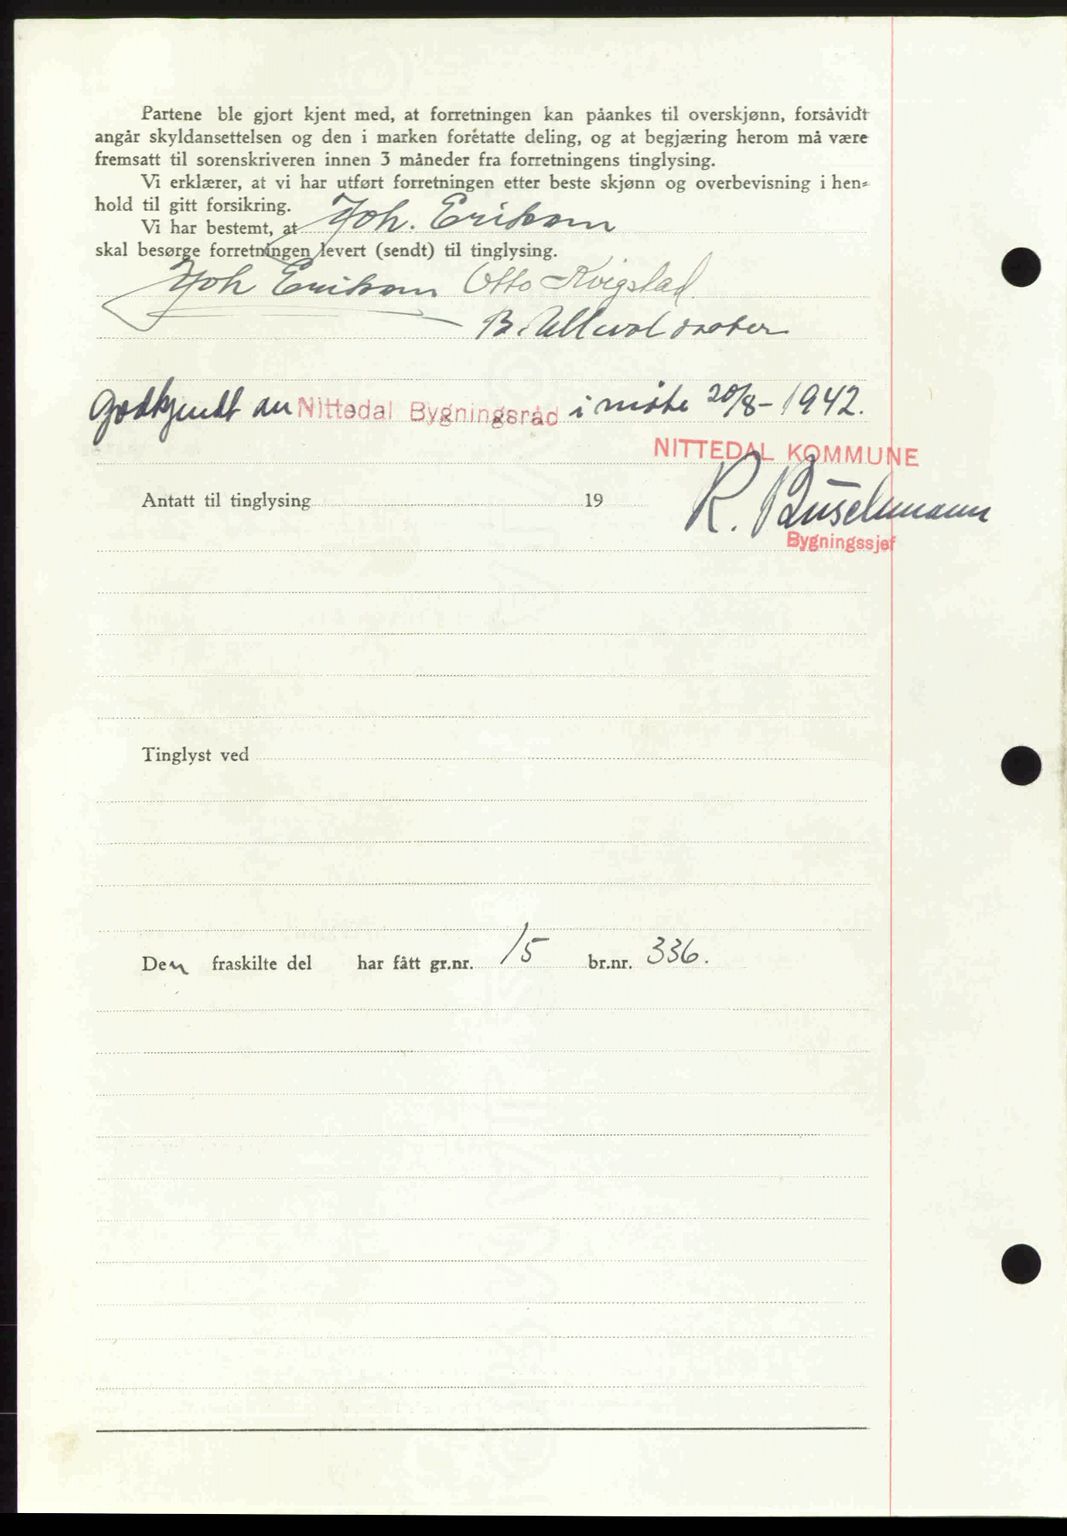 Partene ble gjort kjent med, at forretningen kan påankes til overskjønn, forsåvidt
angår skyldansettelsen og den i marken foretatte deling, og at begjæring herom må være
fremsatt til sorenskriveren innen 3 måneder fra forretningens tinglysing.
Vi erklærer, at vi har utført forretningen etter beste skjønn og overbevisning i hen=
hold til gitt forsikring.
Vi har bestemt, at Joh. Eriksen
skal besørge forretningen levert (sendt) til tinglysing.
Joh Eriksen Otto Kvigstad.
B.
Godkjendt av Nittedal Bygningsråd i møte 20/8-1942.
NITTEDAL KOMMUNE
Antatt til tinglysing 19 R. Buschmann
Bygningssjef
Tinglyst ved
Den fraskilte del har fått gr.nr. 15 br.nr. 336.